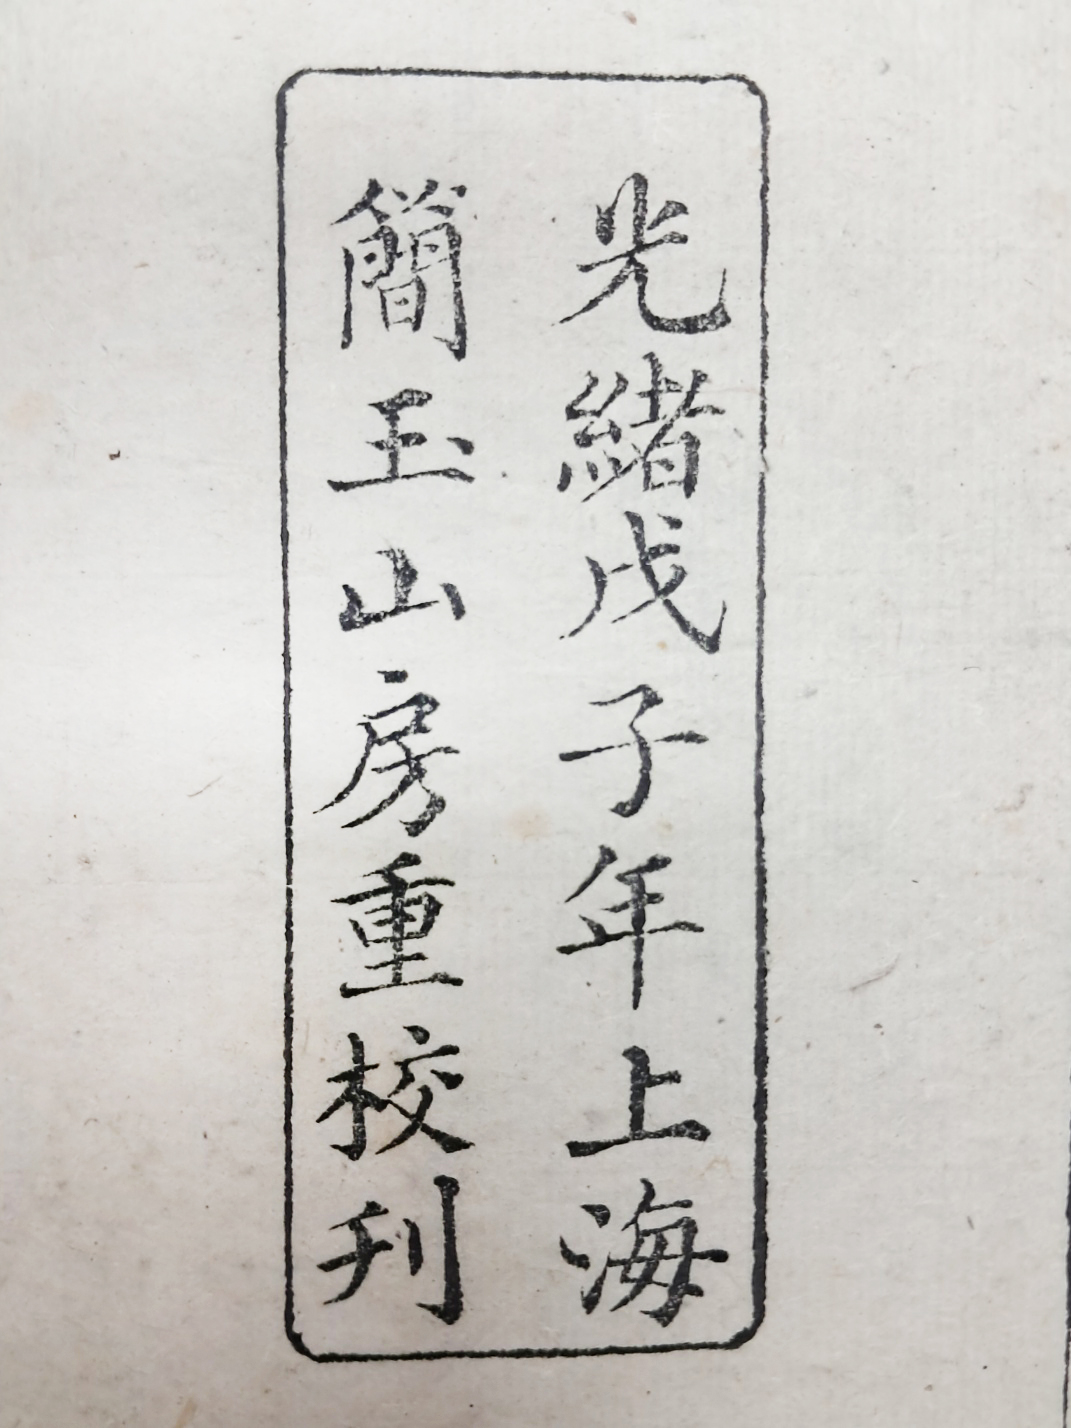 光緒戊子年上海
簡玉山房重校刊